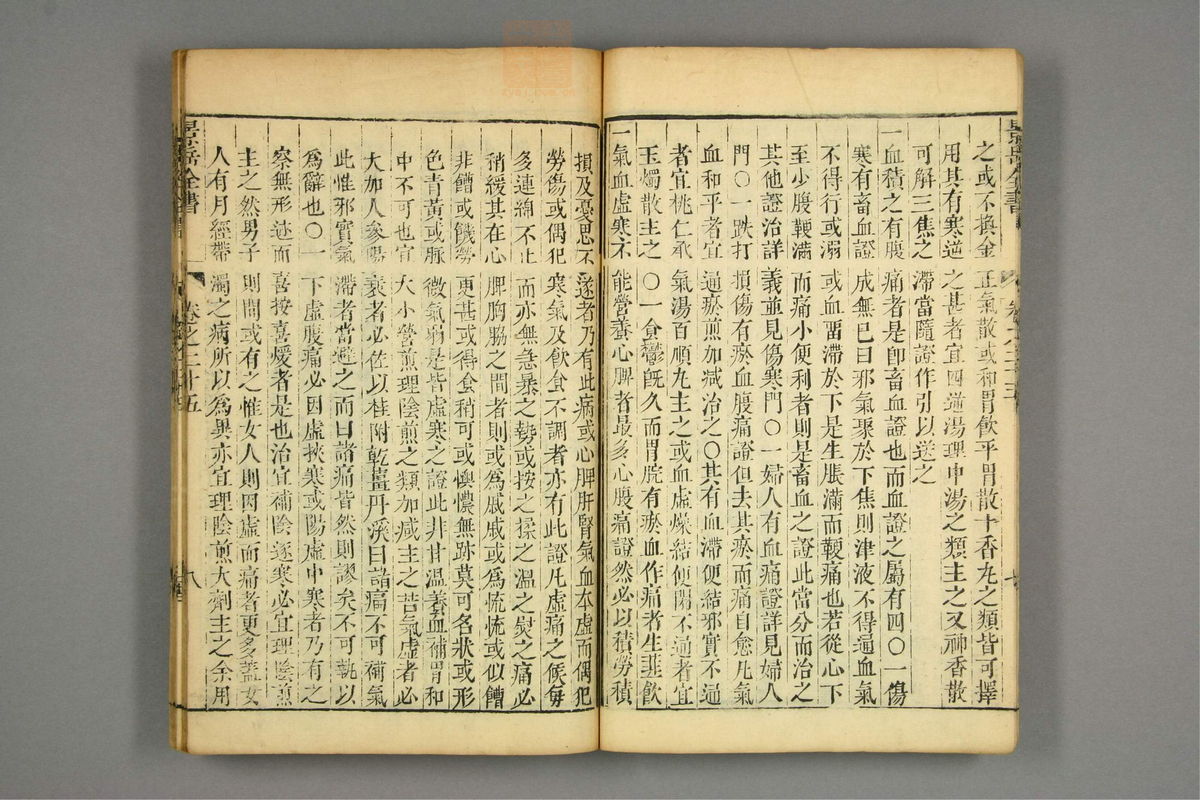 景岳全書
之或不換金正氣散或和胃飲平胃散十香丸之類皆可擇
用其有寒逆之甚者宜四逆湯理中湯之類主之又神香散
可解三焦之滯當隨證作引以送之
一血積之有腹痛者是卽畜血證也而血證之屬有四〇一傷
寒有畜血證成無已曰邪氣聚於下焦則津液不得通血氣
不得行或溺或血畱滯於下是生脹滿而鞕痛也若從心下
至少腹鞕滿而痛小便利者則是畜血之證此當分而治之
其他證治詳義並見傷寒門〇一婦人有血痛證詳見婦人
門〇一跌打損傷有瘀血腹痛證但去其瘀而痛自愈凡氣
血和平者宜通瘀煎加减治之〇其有血滯便結邪實不通
者宜桃仁承氣湯百順丸主之或血虛燥結便閉不通者宜
玉燭散主之〇一食鬱旣久而胃脘有瘀血作痛者生韭飲
一氣血虛寒不能營養心脾者最多心腹痛證然必以積勞積
損及憂思不遂者乃有此病或心脾肝腎氣血本虛而偶犯
勞傷或偶犯寒氣及飮食不調者亦有此證凡虛痛之候每
多連綿不止而亦無急暴之勢或按之揉之溫之熨之痛必
稍緩其在心脾胸脇之間者則或爲戚戚或爲慌慌或似饑
非饑或饑勞更甚或得食稍可或懊憹無跡莫可名狀或形
色青黃或脉微氣弱是皆虛寒之證此非甘溫養血補胃和
中不可也宜大小營煎理陰煎之類加减主之若氣虛者必
大加人參陽衰者必佐以桂附乾薑丹溪曰諸痛不可補氣
此惟邪實氣滯者當避之而曰諸痛皆然則謬矣不可執以
爲辭也〇一下虛腹痛必因虛挾寒或陽虛中寒者乃有之
察無形迹而喜按喜煖者是也治宜補陰逐寒必宜理陰煎
主之然男子則間或有之惟女人則因虛而痛者更多蓋女
人有月經帶濁之病所以爲異亦宜理陰煎大劑主之余用
景岳全書
卷之二十五
八